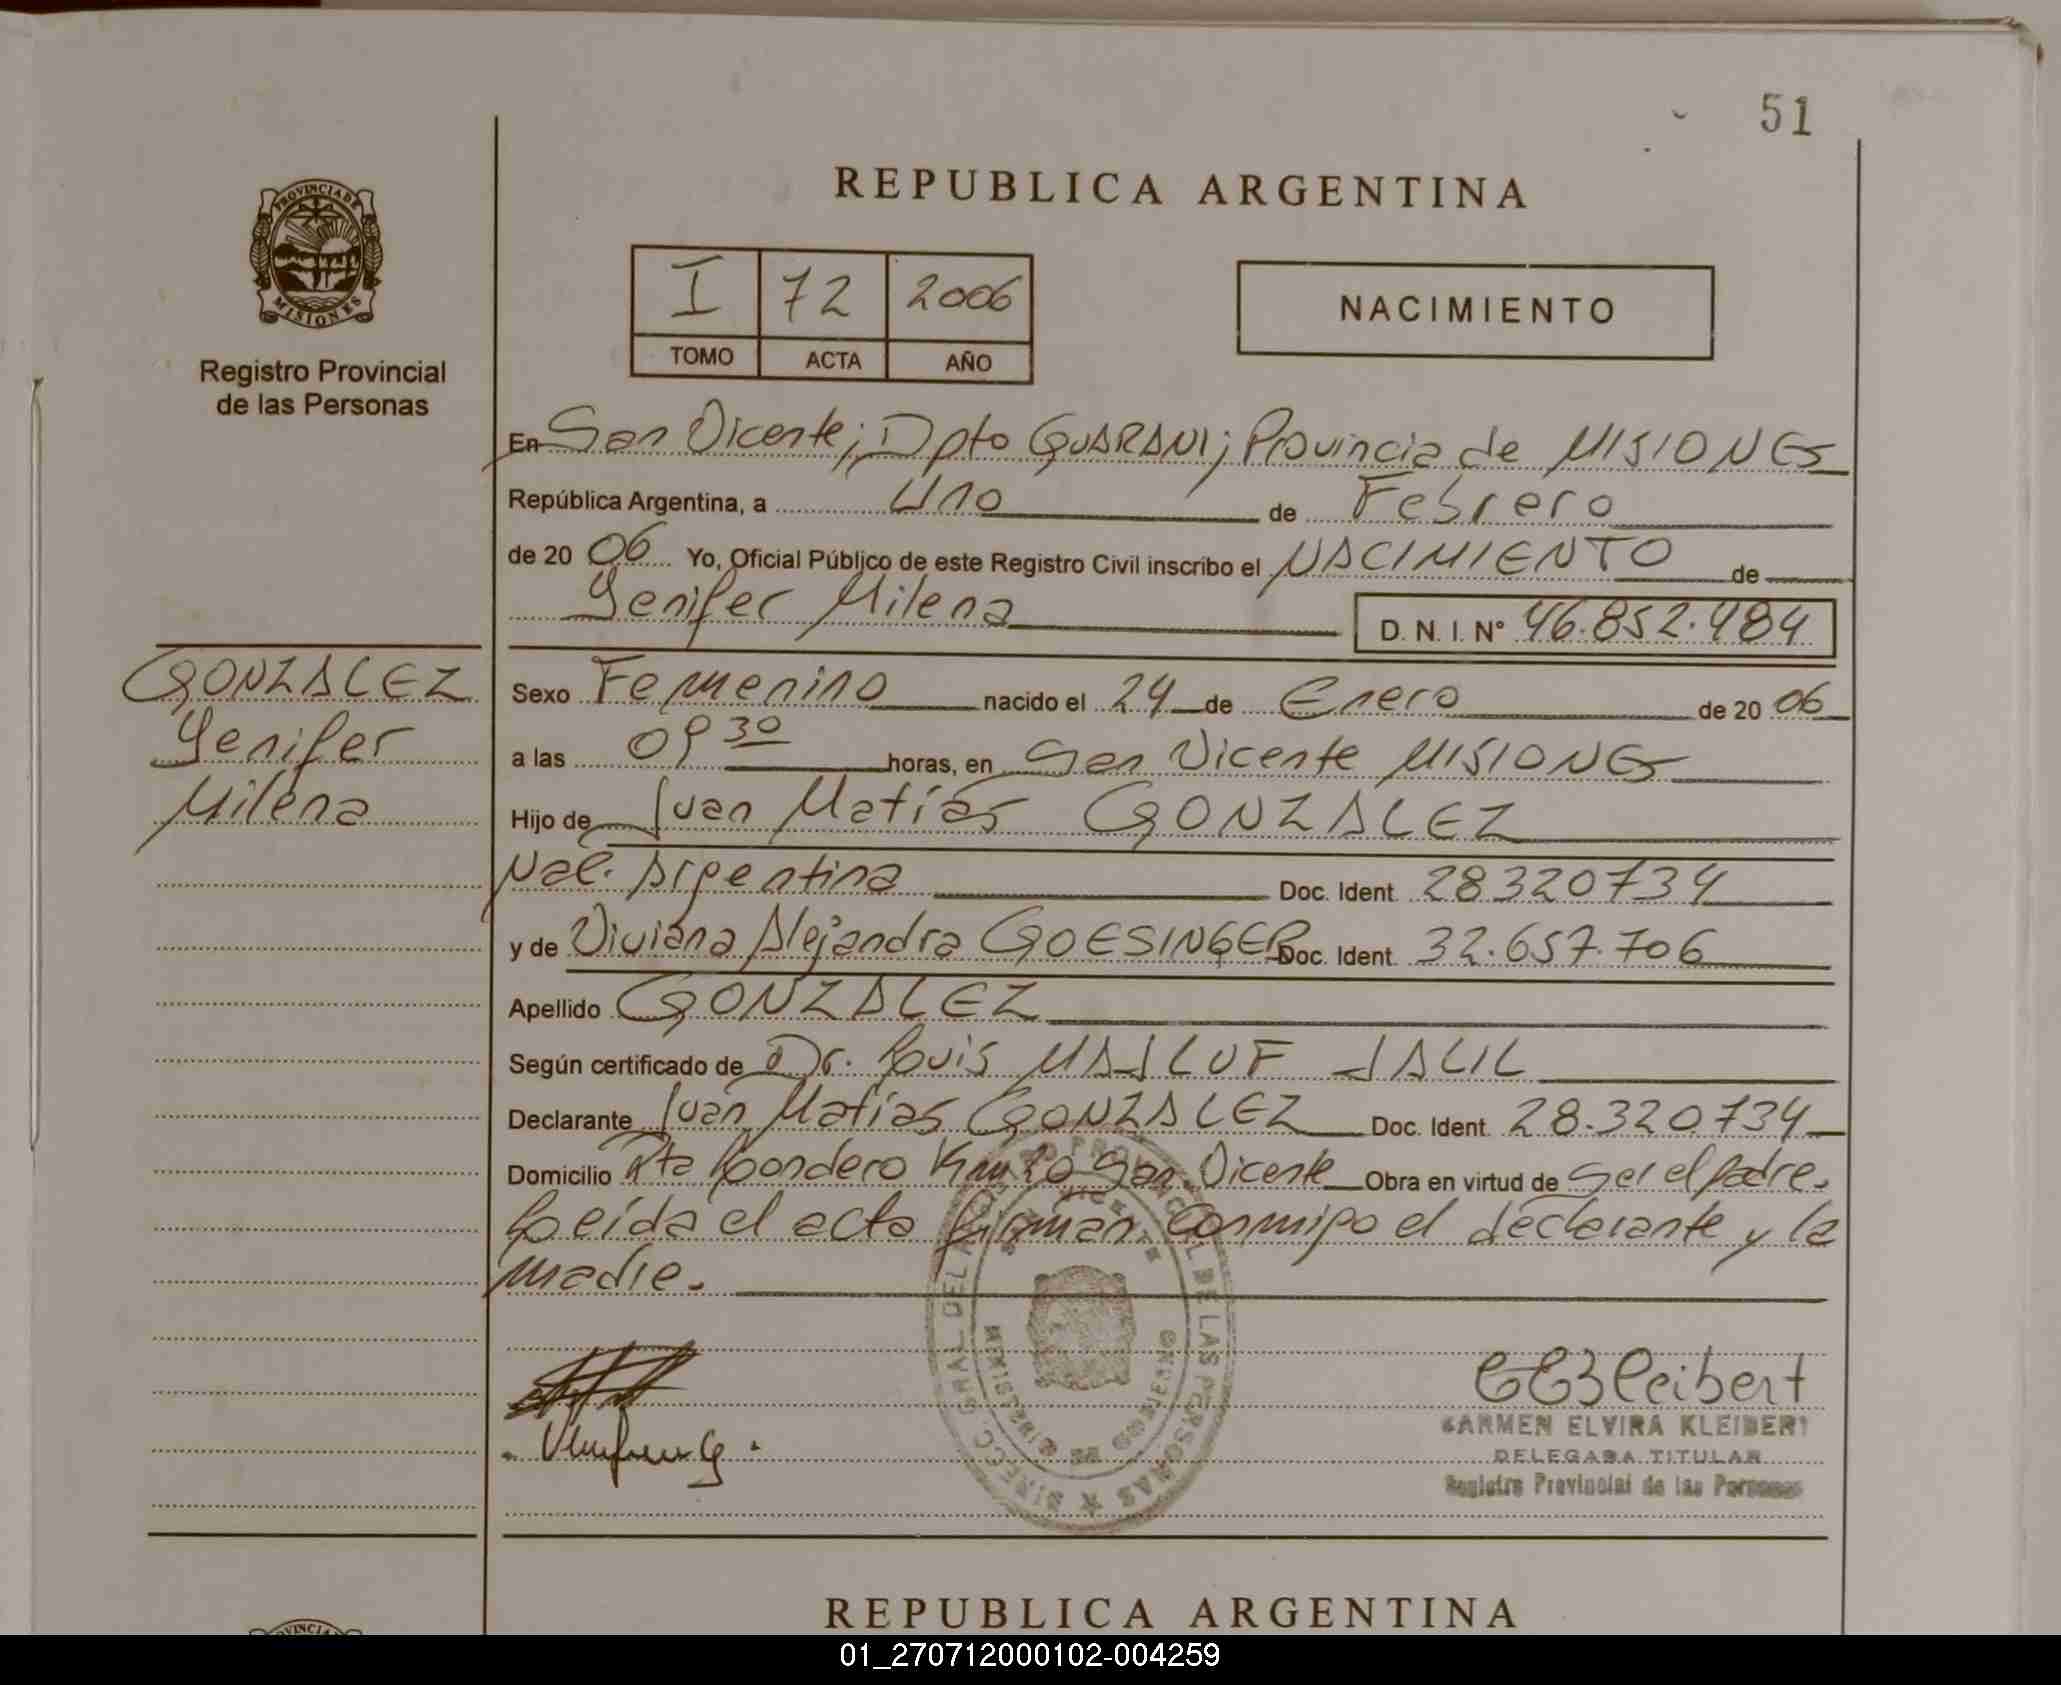 51
PROVINCIA DE
MISIONES
Registro Provincial
de las Personas
REPUBLICA ARGENTINA
I 72 2006
TOMO ACTA AÑO
NACIMIENTO
En San Vicente; Dpto GUARANI; Provincia de MISIONES
República Argentina, a Uno de Febrero
de 20 06 Yo, Oficial Público de este Registro Civil inscribo el NACIMIENTO de
Yenifer Milena D. N. I. N° 46.852.484
GONZALEZ
Yenifer
Milena
Sexo Femenino nacido el 24 de Enero de 20 06
a las 09 30 horas, en San Vicente MISIONES
Hijo de Juan Matías GONZALEZ
Nac. Argentina Doc. Ident. 28320734
y de Viviana Alejandra GOESINGER Doc. Ident. 32.657.706
Apellido GONZALEZ
Según certificado de Dr. Louis MASLUF JALIL
Declarante Juan Matías GONZALEZ Doc. Ident. 28.320.734
Domicilio Pta Londero Km 20 San Vicente Obra en virtud de ser el padre.
Leída el acta firman conmigo el declarante y la
madre.
CEKleibert
CARMEN ELVIRA KLEIBERT
DELEGADA TITULAR
Registro Provincial de las Personas
REPUBLICA ARGENTINA
01_270712000102-004259